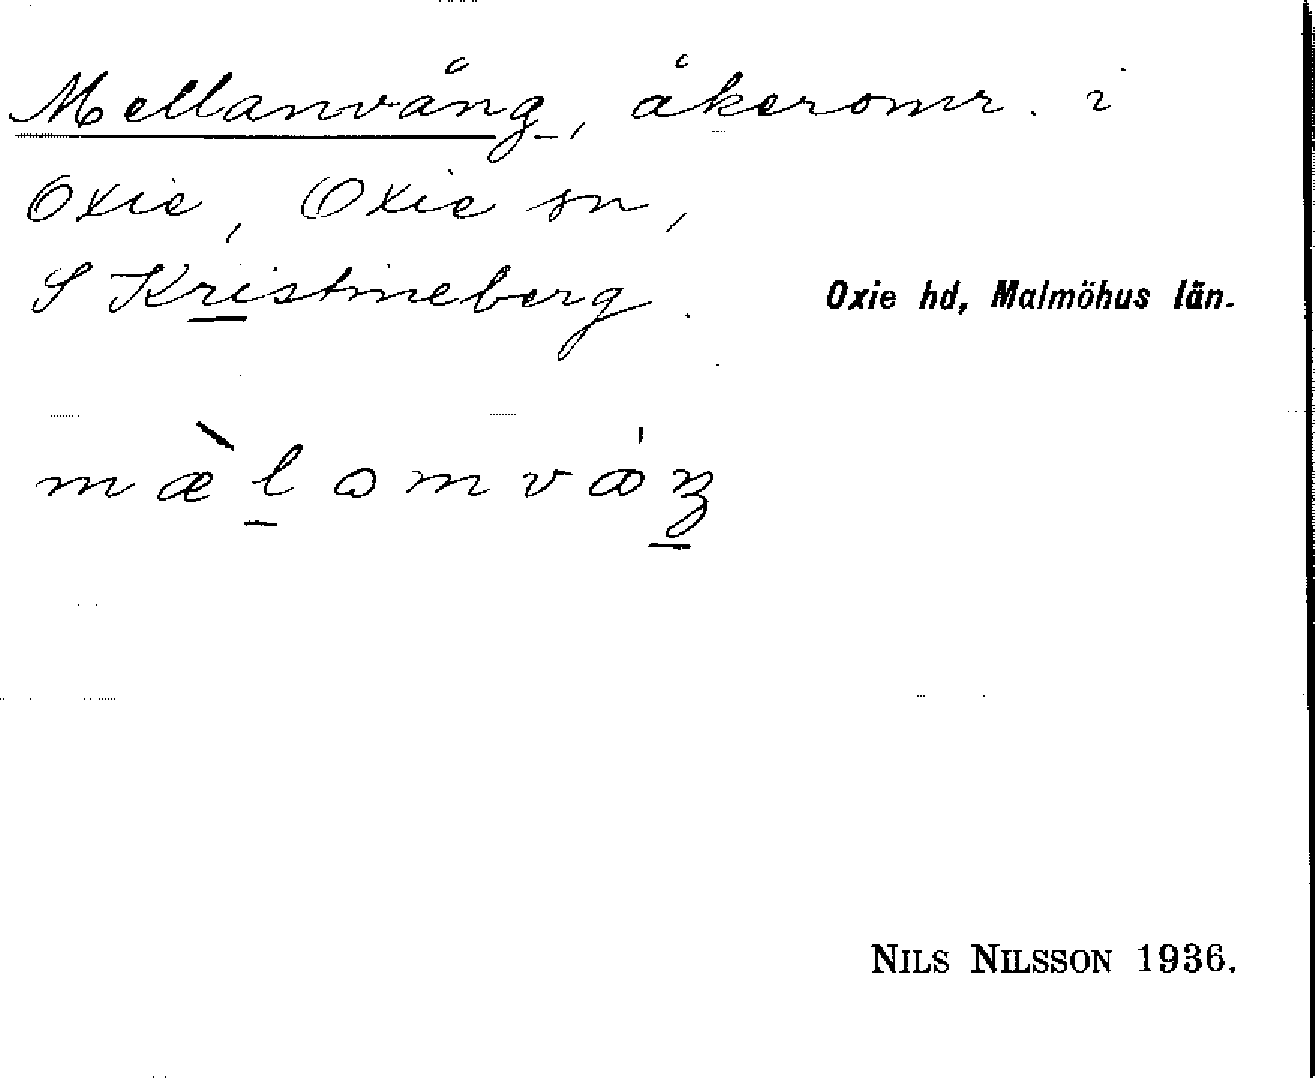 Mellanvång, åkeromr. i
Oxie, Oxie sn,
S Kristineberg.
Oxie hd, Malmöhus län.
NILS NILSSON 1936.